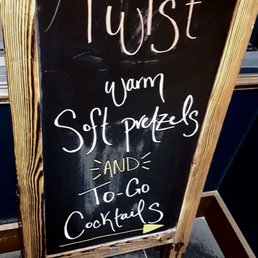 Twist
warm
Soft pretzels
AND
To-Go
Cocktails